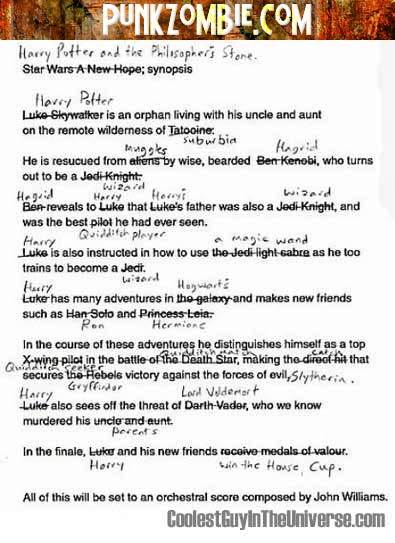 PUNKZOMBIE.COM
Harry Potter and the Philosopher's Stone.
Star Wars A New Hope; synopsis
Harry Potter
Luke Skywalker is an orphan living with his uncle and aunt
on the remote wilderness of Tatooine.
suburbia
muggles Hagrid
He is resucued from aliens by wise, bearded Ben Kenobi, who turns
out to be a Jedi Knight.
wizard
Hagrid Harry Harry's wizard
Ben reveals to Luke that Luke's father was also a Jedi Knight, and
was the best pilot he had ever seen.
Quidditch player
Harry a magic wand
Luke is also instructed in how to use the Jedi light sabre as he too
trains to become a Jedi.
wizard
Harry Hogwarts
Luke has many adventures in the galaxy and makes new friends
such as Han Solo and Princess Leia.
Ron Hermione
In the course of these adventures he distinguishes himself as a top
Quidditch match catch
X-wing pilot in the battle of the Death Star, making the direct hit that
Quidditch Seeker
secures the Rebels victory against the forces of evil, Slytherin.
Gryffindor
Harry Lord Voldemort
Luke also sees off the threat of Darth Vader, who we know
murdered his uncle and aunt.
parents
In the finale, Luke and his new friends receive medals of valour.
Harry win the House Cup.
All of this will be set to an orchestral score composed by John Williams.
CoolestGuyInTheUniverse.com